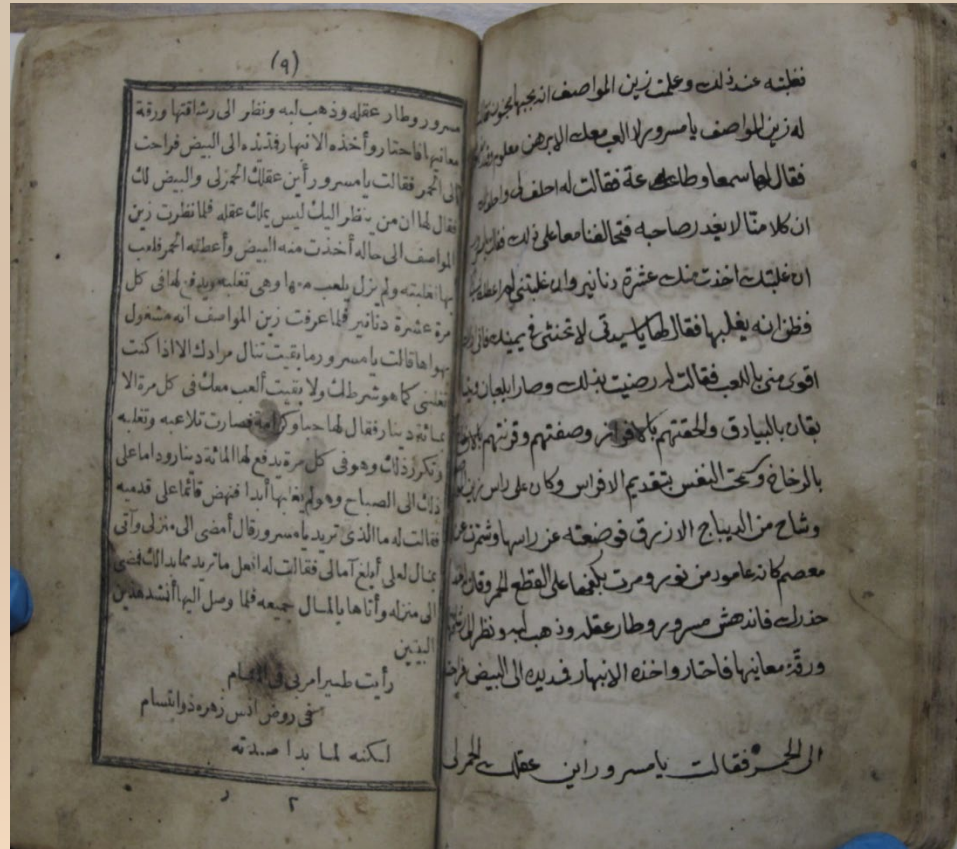 فغلبته عند ذلك وعلمت زين المواصف انه بحبها مجنون فقالت
له زين المواصف يا مسرور لا العب معك الا برهن معلوم وقدر
فقال لها سمعا وطاعة فقالت له احلف لى واحلف لك
ان كلا منا لا يغدر صاحبه فتحالفنا معا على ذلك فقالت
ان غلبتك اخذت منك عشرة دنانير وان غلبتني لم اعطك
فظن انه يغلبها فقال لها يا سيدتى لا تحنثى فى يمينك فانى
اقوى منى باللعب فقالت له رضيت بذلك وصارا يلعبان
بقان بالبيادق والحقتهم بالافراس وصفتهم وقرنتهم
بالرخاخ وسمحت النفس بتقديم الافراس وكان على راس زين
وشاح من الديباج الازرق فوضعته عن راسها وشمرت عن
معصم كانه عامود من نور ومرت بكفها على القطع الحمر وقالت
حذرك فاندهش مسرور وطار عقله وذهب لبه ونظر الى
ورقة معانيها فاحتار واخذه الانبهار فمد يده الى البيض فراحت
الى الحمر فقالت يا مسرور اين عقلك الحمر لى
(٩)
مسرور وطار عقله وذهب لبه ونظر الى رشاقتها ورقة
معانيها فاحتار وأخذه الانبهار فمد يده الى البيض فراحت
الى الحمر فقالت يا مسرور أين عقلك الحمر لى والبيض لك
فقال لها ان من ينظر اليك ليس يملك عقله فلما نظرت زين
المواصف الى حاله أخذت منه البيض وأعطته الحمر فلعب
بها فغلبته ولم يزل يلعب معها وهى تغلبه ويدفع لها فى كل
مرة عشرة دنانير فلما عرفت زين المواصف انه مشغول
بهواها قالت يا مسرور ما بقيت تنال مرادك الا اذا كنت
تغلبنى كما هو شرطك ولا بقيت ألعب معك فى كل مرة الا
بمائة دينار فقال لها حبا وكرامة فصارت تلاعبه وتغلبه
وتكرر ذلك وهو فى كل مرة يدفع لها المائة دينار وداما على
ذلك الى الصباح وهو لم يغلبها أبدا فنهض قائما على قدميه
فقالت له ما الذى تريد يا مسرور قال أمضى الى منزلى وآتى
بمال لعلى أبلغ آمالى فقالت له افعل ما تريد مما بدا لك فمضى
الى منزله وأتاها بالمال جميعه فلما وصل اليها أنشد هذين
البيتين
رأيت طيرا مر بى فى المنام
فى روض انس زهره ذو ابتسام
لكنه لما بدا صدته
٢